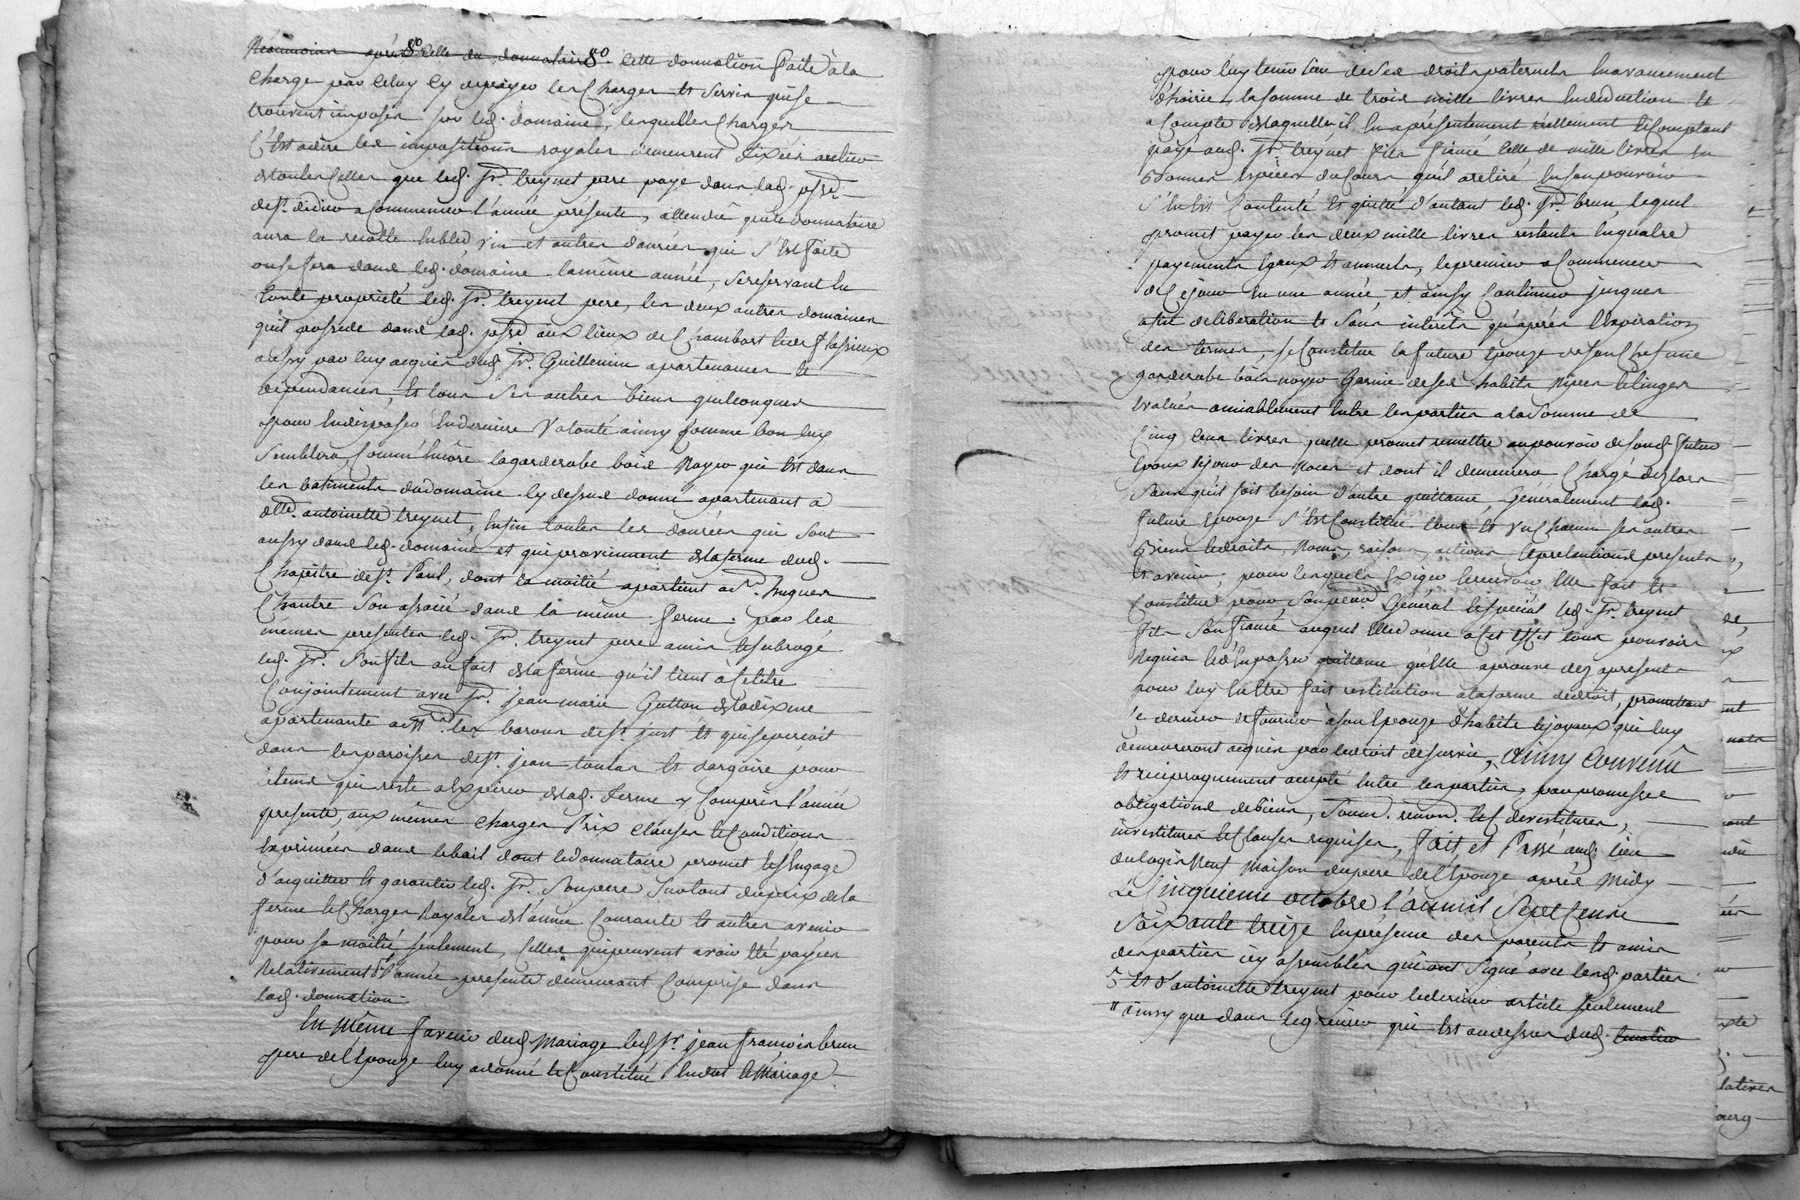 Néanmoins après 8° Celle du donnataire 8°. Cette donnation faitte à la
charge par Celuy Cy de payer les Charges et Servis qui se
trouvent imposés sur led. domaine, lesquelles Charges
C'est adire les impositions royales demeurent fixées
de toutes Celles que led. Sr. treynet pere paye dans lad. psse.
de St. didier a Commencer l'année présente, attendû que le donnataire
aura la recolte en bled vin et autres danrées qui s'est faite
ou se fera dans led. domaine la même année, se reservant en
toute propriété led. Sr. treynet pere, les deux autres domaines
qu'il possede dans lad. psse. aux lieux de Chambost et de flassieux
aussy par luy acquis dud. Sr. Guillemin apartenances et
dépendances, et tous ses autres biens quelconques
pour en disposer en derniere Volonté ainsy Comme bon luy
Semblera, Comm'encore la garderobe bois Noyer qui est dans
les batiments du domaine Cy dessus donné apartenant à
dlle. antoinette treynet, Enfin toutes les danrées qui sont
aussy dans led. domaine et qui proviennent de la ferme dud.
Chapitre de St. Paul, dont la moitié apartient a Sr. hugues
Chantre Son associé dans la même ferme. par les
mêmes presentes led. Sr. treynet pere a mis et subrogé
led. Sr. Son fils au fait de la ferme qu'il tient à
Conjointement avec Sr. jean marie Gutton de la dixme
apartenante a Mrs. les barons de St. just et qui se perçoit
dans les paroisses de St. jean touslas et dargoire pour
le tems qui reste a Expirer de lad. ferme y Compris l'année
presente, aux mêmes charges Prix Clauses et Conditions
Exprimées dans le bail dont le donnataire promet et s'Engage
d'acquitter et garantir led. Sr. Son pere Surtout du prix de la
ferme et Charges Royales de l'année Courante et autres avenir
pour sa moitié seulement, Celles qui peuvent avoir été payées
Relativement à l'année presente demeurant Comprise dans
lad. donnation.
En même faveur dud. Mariage led. Sr. jean françois brun
pere de l'Epouze luy a donné et Constitué
pour luy tenir lieu de ses droits paternels En avancement
d'hoirie, la somme de trois mille livres En déduction et
a Compte de laquelle il En a présentement réellement et Comptant
payé aud. Sr. treynet fils fiancé Celle de mille livres En
bonnes Espèces du Cours qu'il a retiré En son pouvoir
s'En est Contenté et quitte d'autant led. Sr. brun lequel
promet payer les deux mille livres restants En quatre
payements Egaux et annuels, le premier a Commencer
de Ce jour En une année, et ainsy Continuer jusques
afin de libération et Sans intérêts qu'après l'Expiration
des termes, se Constitue la future Epouze de son Chef une
garderobe bois noyer garnie de ses habits Nipes et linges
Evalués amiablement Entre les parties a la Somme de
Cinq Cens livres, qu'elle promet remettre au pouvoir de son futur
Epoux le jour des Noces et dont il demeurera Chargé dezlors
Sans qu'il soit besoin d'autre quittance, Généralement lad.
future Epouze s'Est Constitué tous et Un Chacun ses autres
Biens et droits, Noms, raisons, actions et pretentions presents
et avenir, pour lesquels Exiger et recevoir Elle fait et
Constitue pour Son proc. Général et spécial led. Sr. treynet
fils Son fiancé auquel Elle donne a Cet Effet tous pouvoirs
Requis et d'En passer quittance qu'Elle aprouve dez apresent
pour luy En Etre fait restitution a la forme de droit, promettant
Ce dernier de fournir à son Epouze d'habits et joyaux qui luy
demeureront acquis par le droit de survie, Ainsy Convenû
et reciproquement accepté Entre les parties, par promesses
obligations de biens, Soum. renon. et devestitures,
investitures et Clauses requises, fait et Passé aud. lieu
du logis Neuf Maison du pere de l'Epouze après Midy
Le Cinquieme octobre l'an mil Sept Cent
Soixante treize En présence des parents et amis
des parties icy assemblés qui ont Signé avec lesd. parties
et d. antoinette treynet pour le dernier article seulement
ainsy que dans qui est audessus dud.